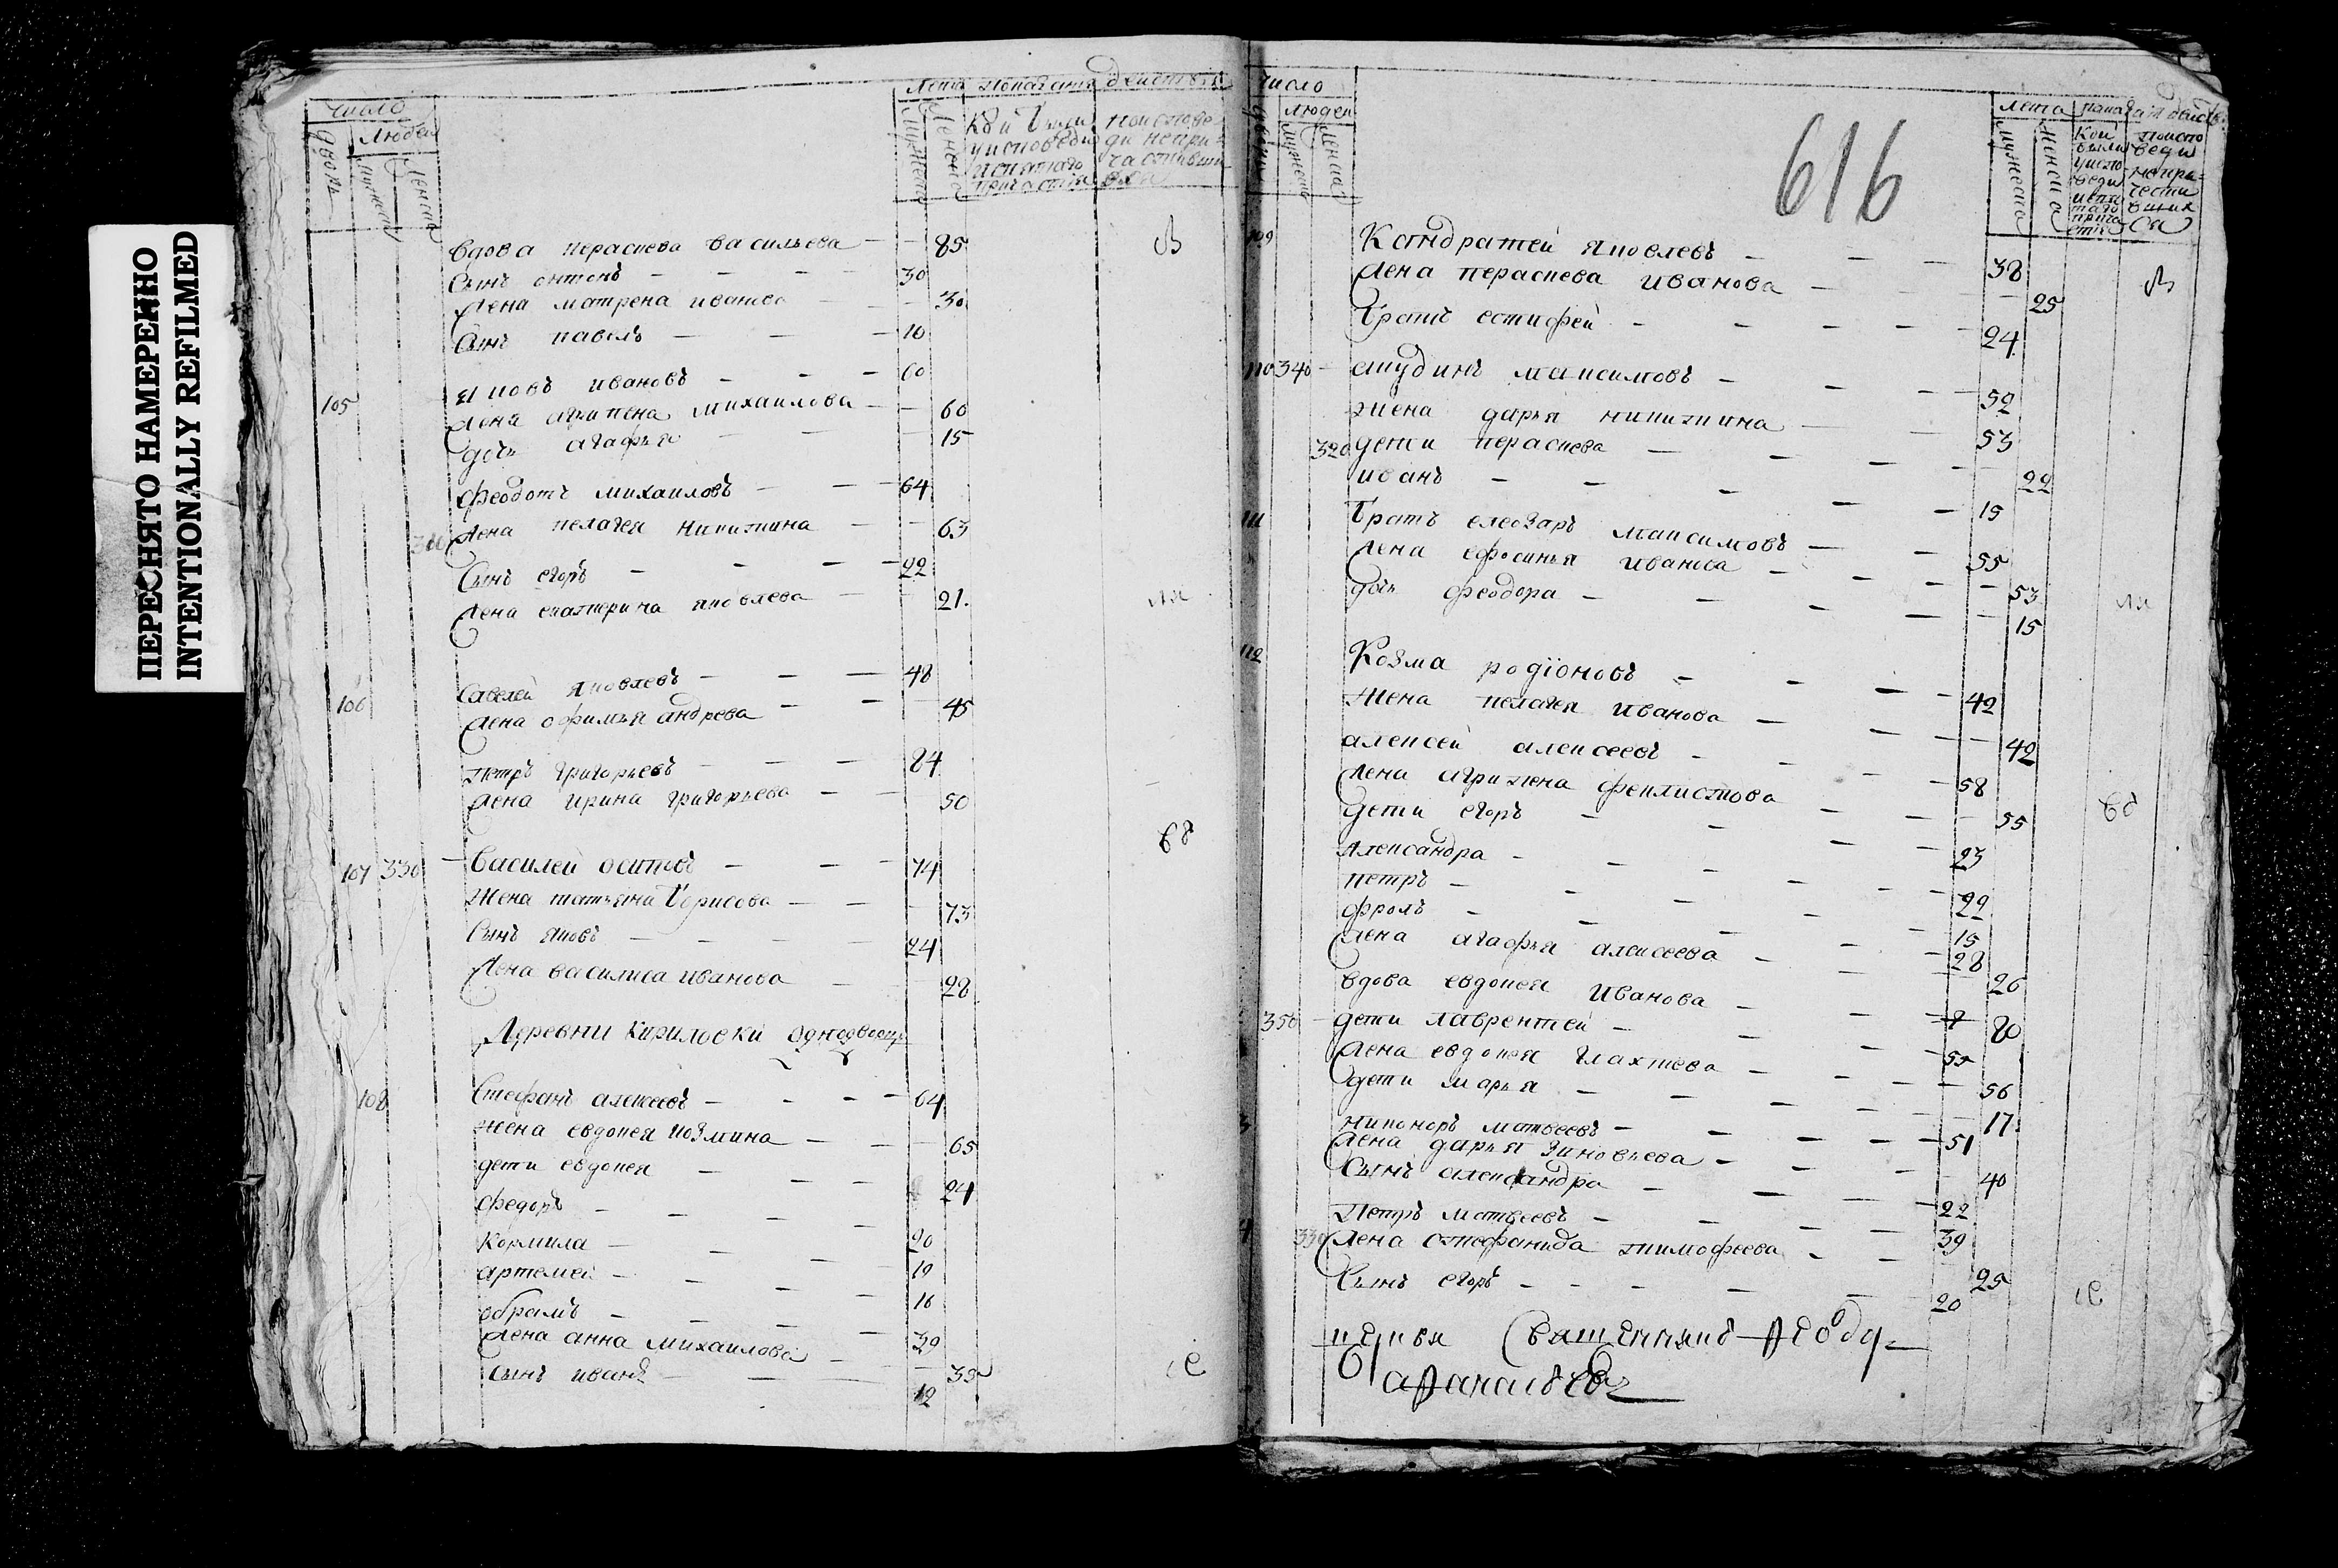 ПЕРЕСНЯТО НАМЕРЕННО
INTENTIONALLY REFILMED
Число
Людей
Лета
Вдова пераскева васильева — 85
Сынъ онтонъ — 30
Жена матрена иванова — 30
Сынъ павелъ — 10
105 яковъ ивановъ — 60
жена агрипена михаилова — 60
дочь агафья — 15
феодотъ михаиловъ — 64
жена пелагея никитина — 63
Сынъ егоръ — 22
жена екатерина яковлева — 21
106 Савелей яковлевъ — 48
жена офимья андреева — 45
петръ григорьевъ — 84
жена ирина григорьева — 50
107 330 Василей осиповъ — 74
жена татьяна борисова — 73
Сынъ яковъ — 24
жена василиса иванова — 28
Деревни Кириловки однодворцы
108 Стефанъ алексеевъ — 64
жена евдокея козмина — 65
дети евдокея — 24
федоръ — 20
Кормила — 19
артемей — 16
обрамъ — 39
жена анна михаилова — 39
Сынъ иванъ — 12
Число
Людей
Лета
616
109 Кондратей яковлевъ — 38
жена пераскева иванова — 25
братъ естифей — 24
110 340 анудинъ максимовъ — 52
жена дарья никитина — 53
320 дети пераскева — 22
иванъ — 15
111 братъ елеозаръ максимовъ — 55
жена ефросинья иванова — 53
дочь феодора — 15
112 Козма родїоновъ — 42
жена пелагея иванова — 42
алексей алексеевъ — 58
жена агрипена феклистова — 55
дети егоръ — 23
александра — 22
петръ — 15
фролъ — 28
жена агафья алексеева — 26
вдова евдокея иванова — 80
350 дети лаврентей — 55
жена евдокея — 56
дети марья — 17
никоноръ матвеевъ — 51
жена дарья зиновьева — 40
Сынъ александра — 22
Петръ матвеевъ — 39
330 жена степанида тимофеева — 25
Сынъ егоръ — 20